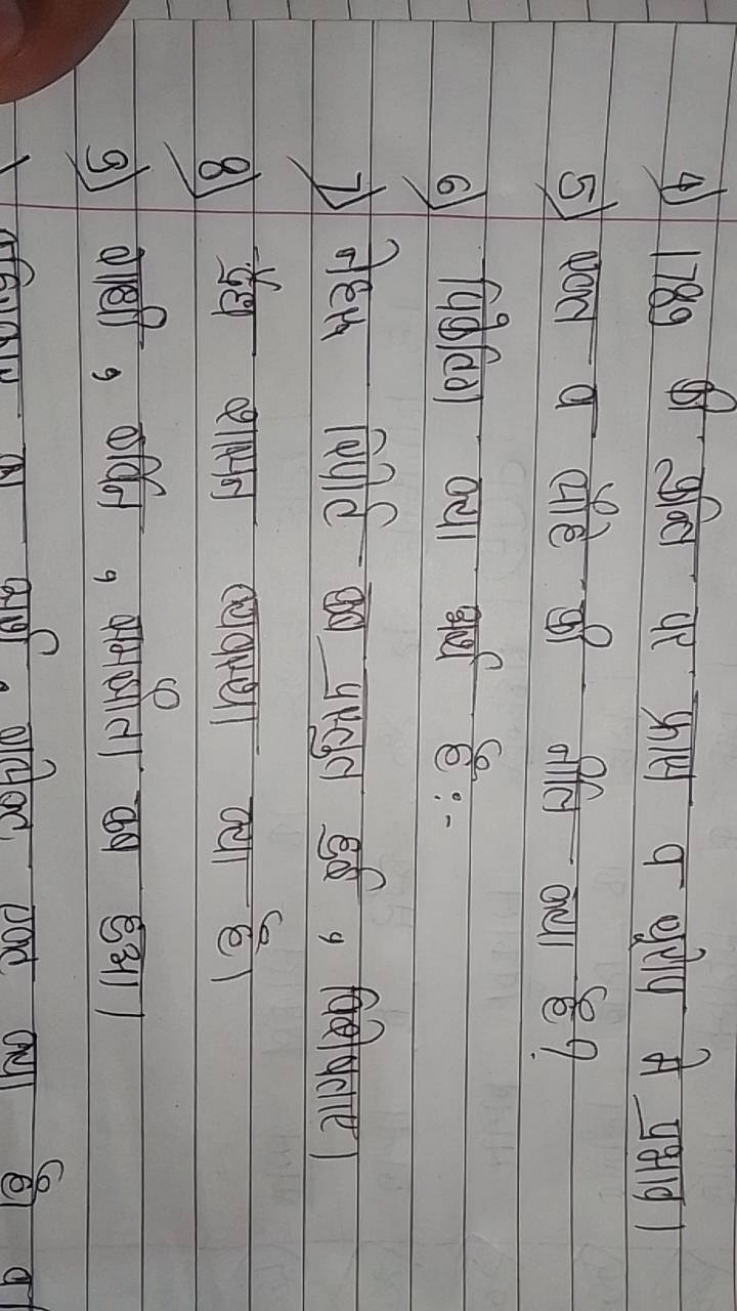 4) 1789 की क्रांति पर फ्रांस व यूरोप मे प्रभाव।
5) रक्त व लौह की नीति क्या है?
6) रिपोर्ट क्या अर्थ है :-
7) नेहरू रिपोर्ट कब प्रस्तुत हुई , विशेषताए।
8) द्वैध शासन व्यवस्था क्या है।
9) गांधी , इर्विन , समझौता कब हुआ।
अर्थ , क्या है